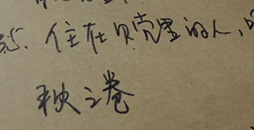 住在贝壳里的人,
秧之卷